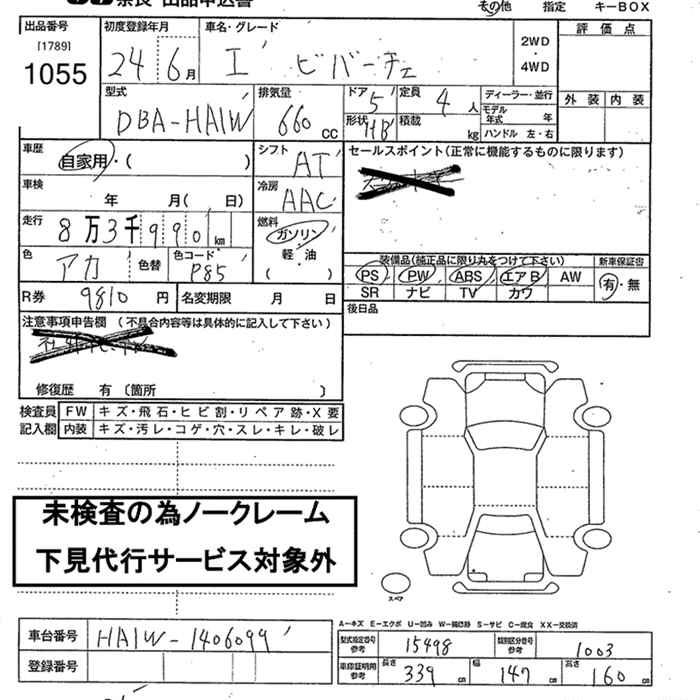 奈良 出品申込書 その他 指定 キーBOX
出品番号 初度登録年月 車名・グレード 2WD・4WD 評価点
[1789]
1055 24年 6月 I ビバーチェ
型式 排気量 ドア 定員 ディーラー・並行 外装 内装
DBA-HA1W 660 cc 5 4人 モデル年式 年
形状 HB 積載 kg ハンドル 左・右
車歴 自家用・( ) シフト AT セールスポイント(正常に機能するものに限ります)
車検 年 月( 日) 冷房 AAC
走行 8万3千990km 燃料 ガソリン
色 アカ 色替 色コード P85 軽油 ( )
装備品(純正品に限り丸をつけて下さい) 新車保証書
PS PW ABS エアB AW 有・無
SR ナビ TV カワ
R券 9810円 名変期限 月 日 後日品
注意事項申告欄 (不具合内容等は具体的に記入して下さい)
修復歴 有 〔箇所 〕
検査員 FW キズ・飛石・ヒビ割・リペア跡・X要
記入欄 内装 キズ・汚レ・コゲ・穴・スレ・キレ・破レ
未検査の為ノークレーム
下見代行サービス対象外
スペア
A-キズ E-エクボ U-凹み W-補修跡 S-サビ C-腐食 XX-交換済
車台番号 HA1W-1406099 型式指定番号 参考 15498 類別区分番号 参考 1003
登録番号 車印証明用 参考 長さ 339cm 幅 147cm 高さ 160cm